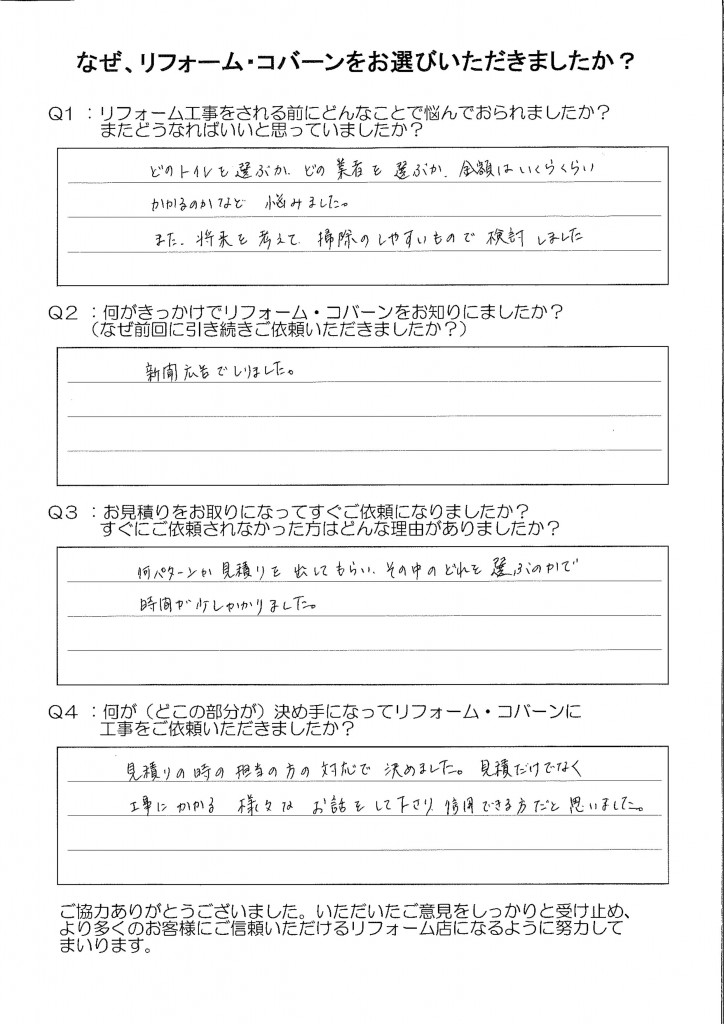 なぜ、リフォーム・コバーンをお選びいただきましたか？
Q1 ：リフォーム工事をされる前にどんなことで悩んでおられましたか？
またどうなればいいと思っていましたか？
どのトイレを選ぶか、どの業者を選ぶか、金額はいくらくらい
かかるのかなど 悩みました。
また、将来を考えて、掃除のしやすいもので検討しました
Q2 ：何がきっかけでリフォーム・コバーンをお知りにましたか？
（なぜ前回に引き続きご依頼いただきましたか？）
新聞広告でしりました。
Q3 ：お見積りをお取りになってすぐご依頼になりましたか？
すぐにご依頼されなかった方はどんな理由がありましたか？
何パターンか見積りを出してもらい、その中のどれを選ぶのかで
時間が少しかかりました。
Q4 ：何が（どこの部分が）決め手になってリフォーム・コバーンに
工事をご依頼いただきましたか？
見積りの時の担当の方の対応で決めました。見積だけでなく
工事にかかる様々なお話をして下さり、信用できる方だと思いました。
ご協力ありがとうございました。いただいたご意見をしっかりと受け止め、
より多くのお客様にご信頼いただけるリフォーム店になるように努力して
まいります。